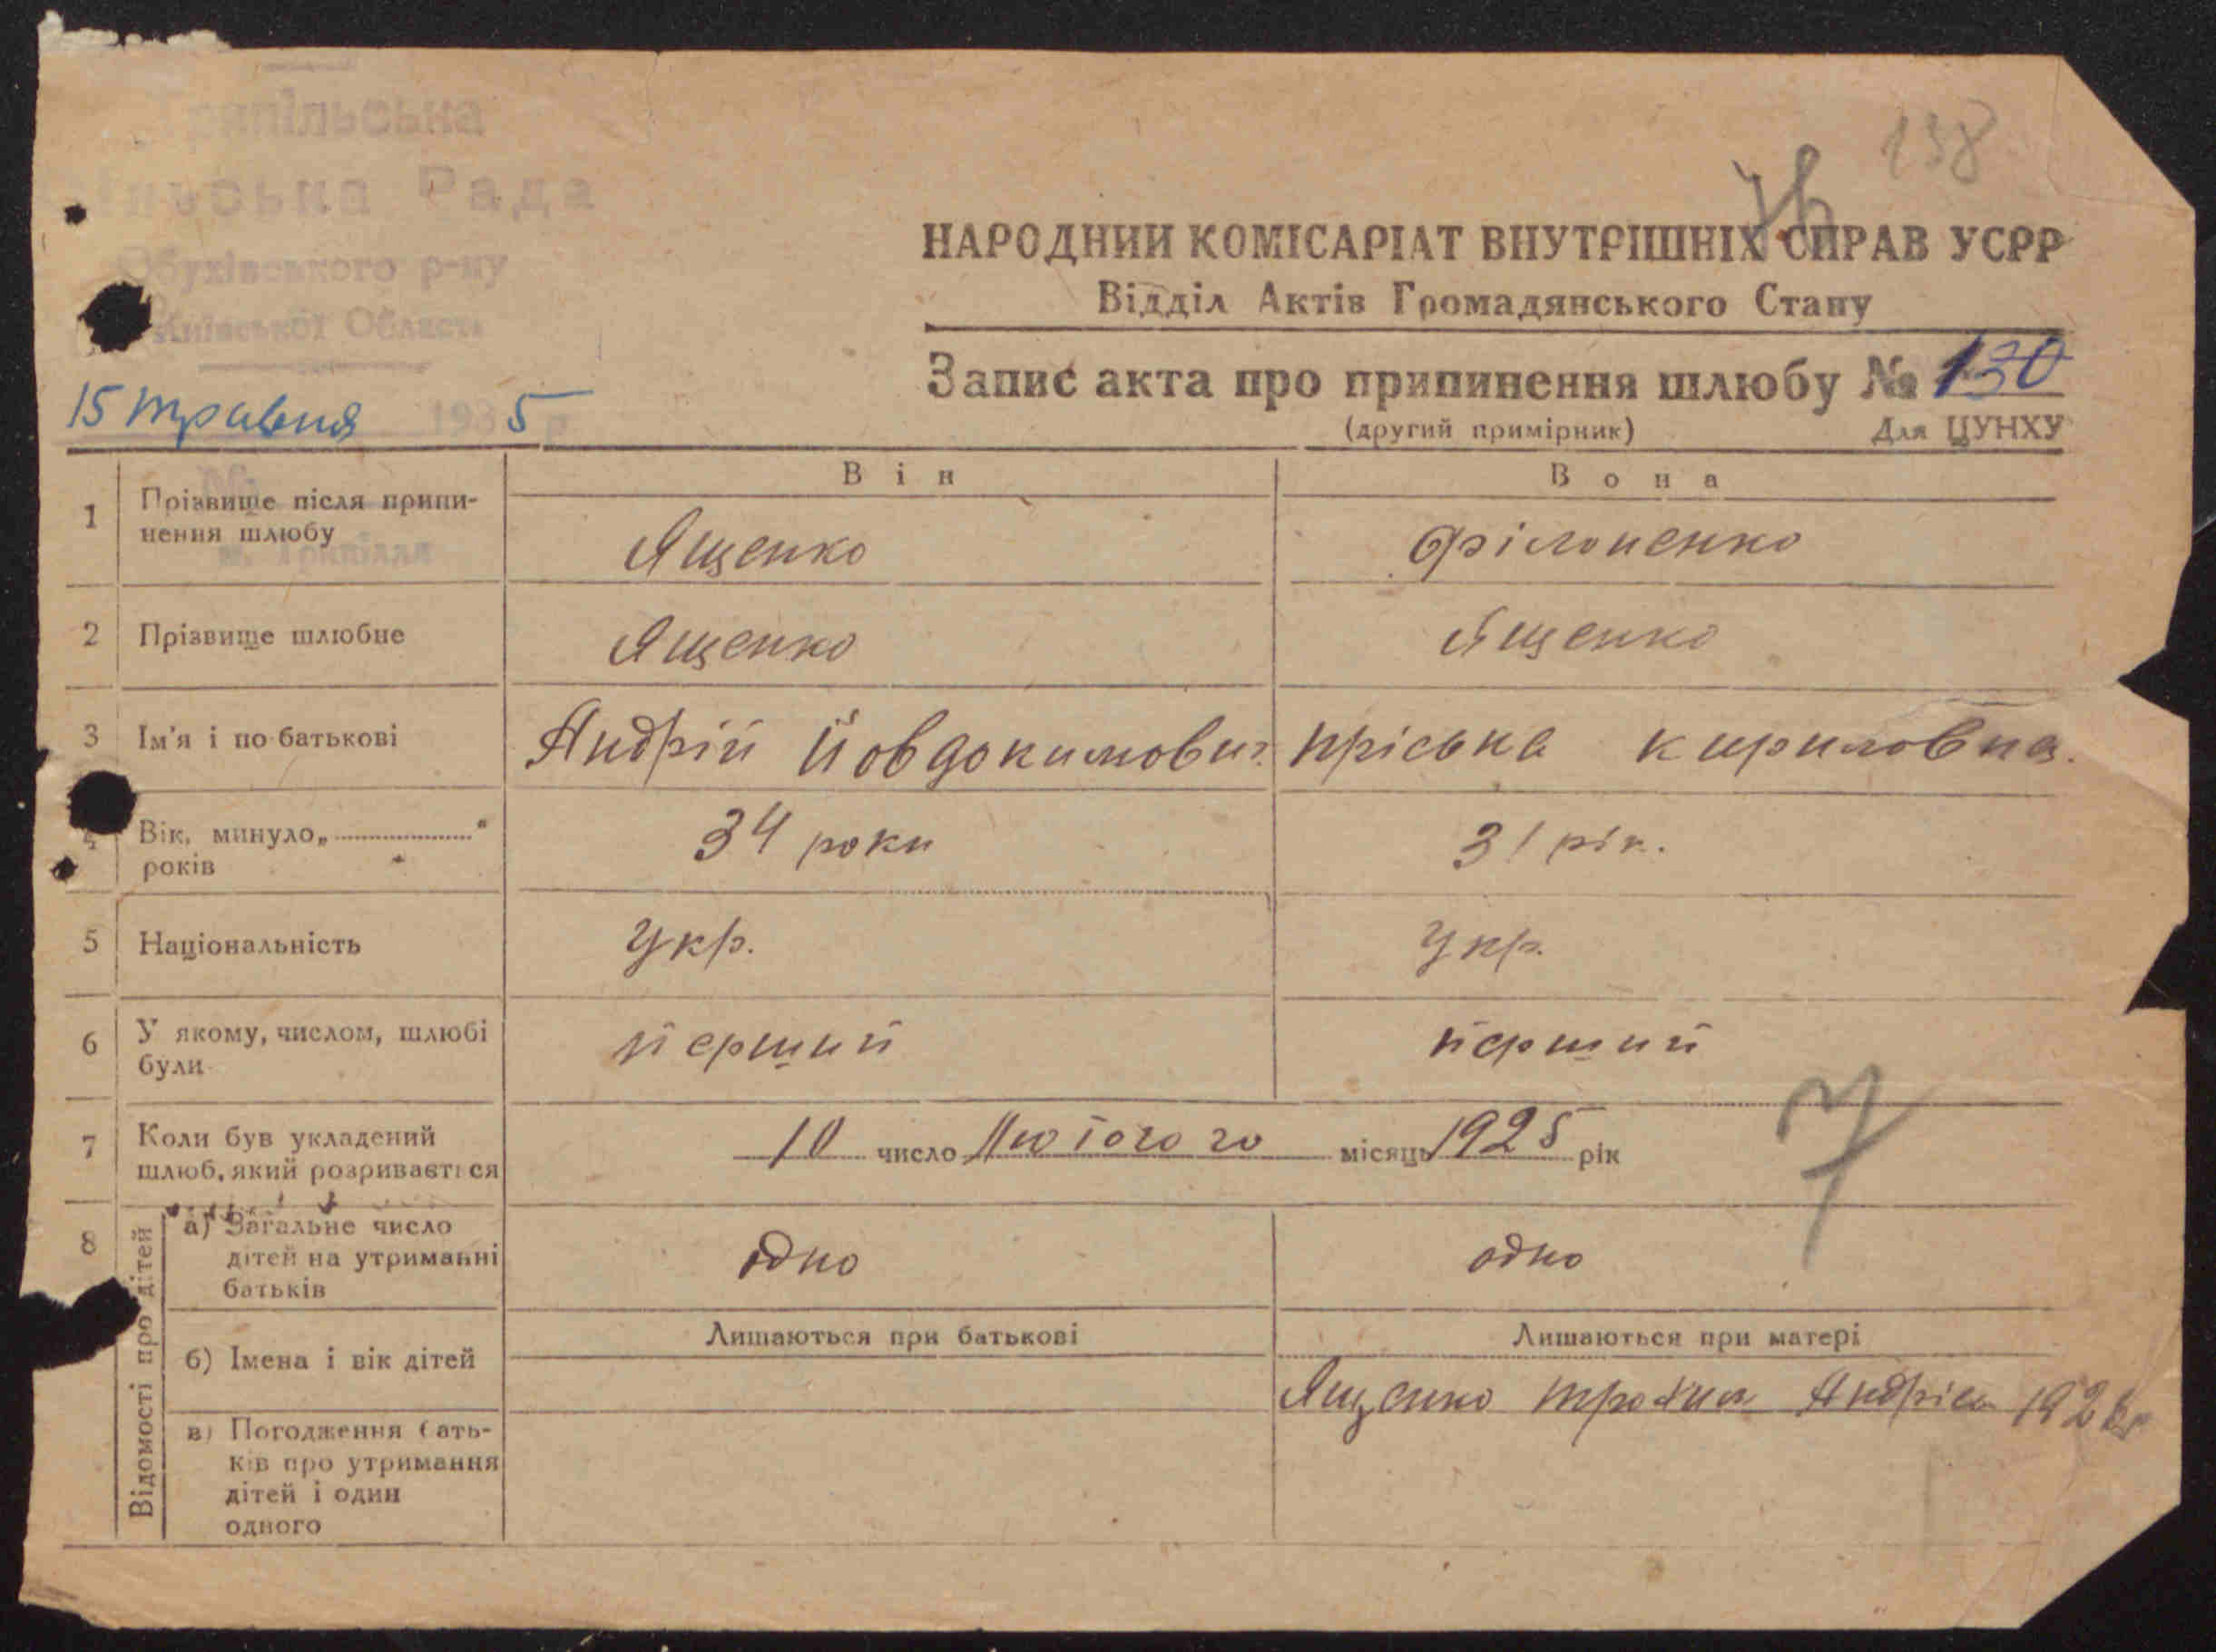 Трипільська
Рада
Обухівського р-ну
Київської Області
138
НАРОДНИЙ КОМІСАРІАТ ВНУТРІШНІХ СПРАВ УСРР
Відділ Актів Громадянського Стану
Запис акта про припинення шлюбу № 130
(другий примірник) Для ЦУНХУ
15 травня 1935 р
№
м. Трипілля
Він Вона
1 Прізвище після припинення шлюбу Ященко Філоненко
2 Прізвище шлюбне Ященко Ященко
3 Ім'я і по батькові Андрій Йовдокимович Пріська Кириловна.
4 Вік, минуло „ “ років 34 роки 31 рік.
5 Національність Укр. Укр.
6 У якому, числом, шлюбі були перший перший
7 Коли був укладений шлюб, який розривається 10 число Лютого го місяць 1925 рік
7
8 Відомості про дітей
а) Загальне число дітей на утриманні батьків одно одно
Лишаються при батькові Лишаються при матері
б) Імена і вік дітей Ященко Андрієв
в) Погодження батьків про утримання дітей і один одного